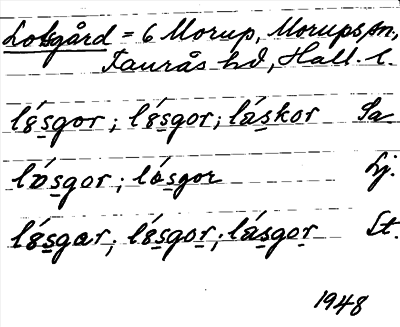 Lobsgård = 6 Morup, Morups sn.,
Faurås hd, Hall. l.
lósgor; lósgor; láskor Sa.
lósgor; lósgor Lj.
lósgar; lósgor; lásgor St.
1948